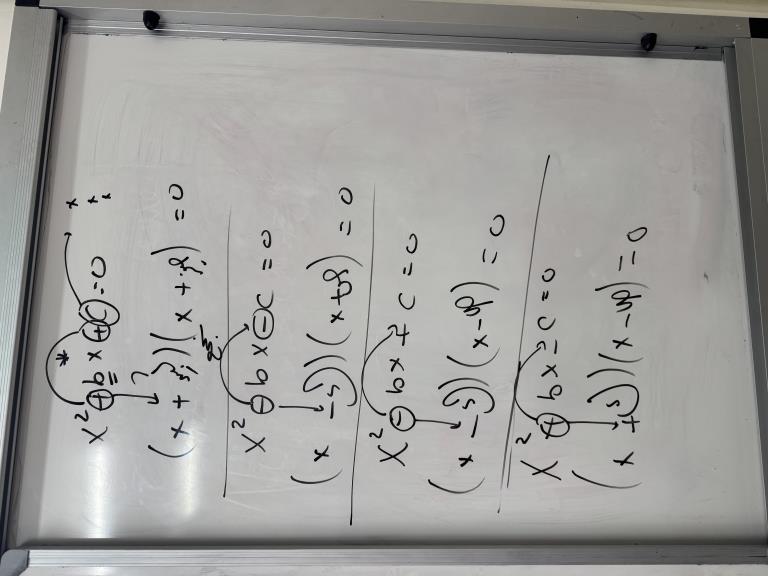 X² + bx + c = 0
(x + )(x + ) = 0
X² − bx − c = 0
(x − )(x + ) = 0
X² − bx + c = 0
(x − )(x − ) = 0
X² + bx − c = 0
(x + )(x − ) = 0